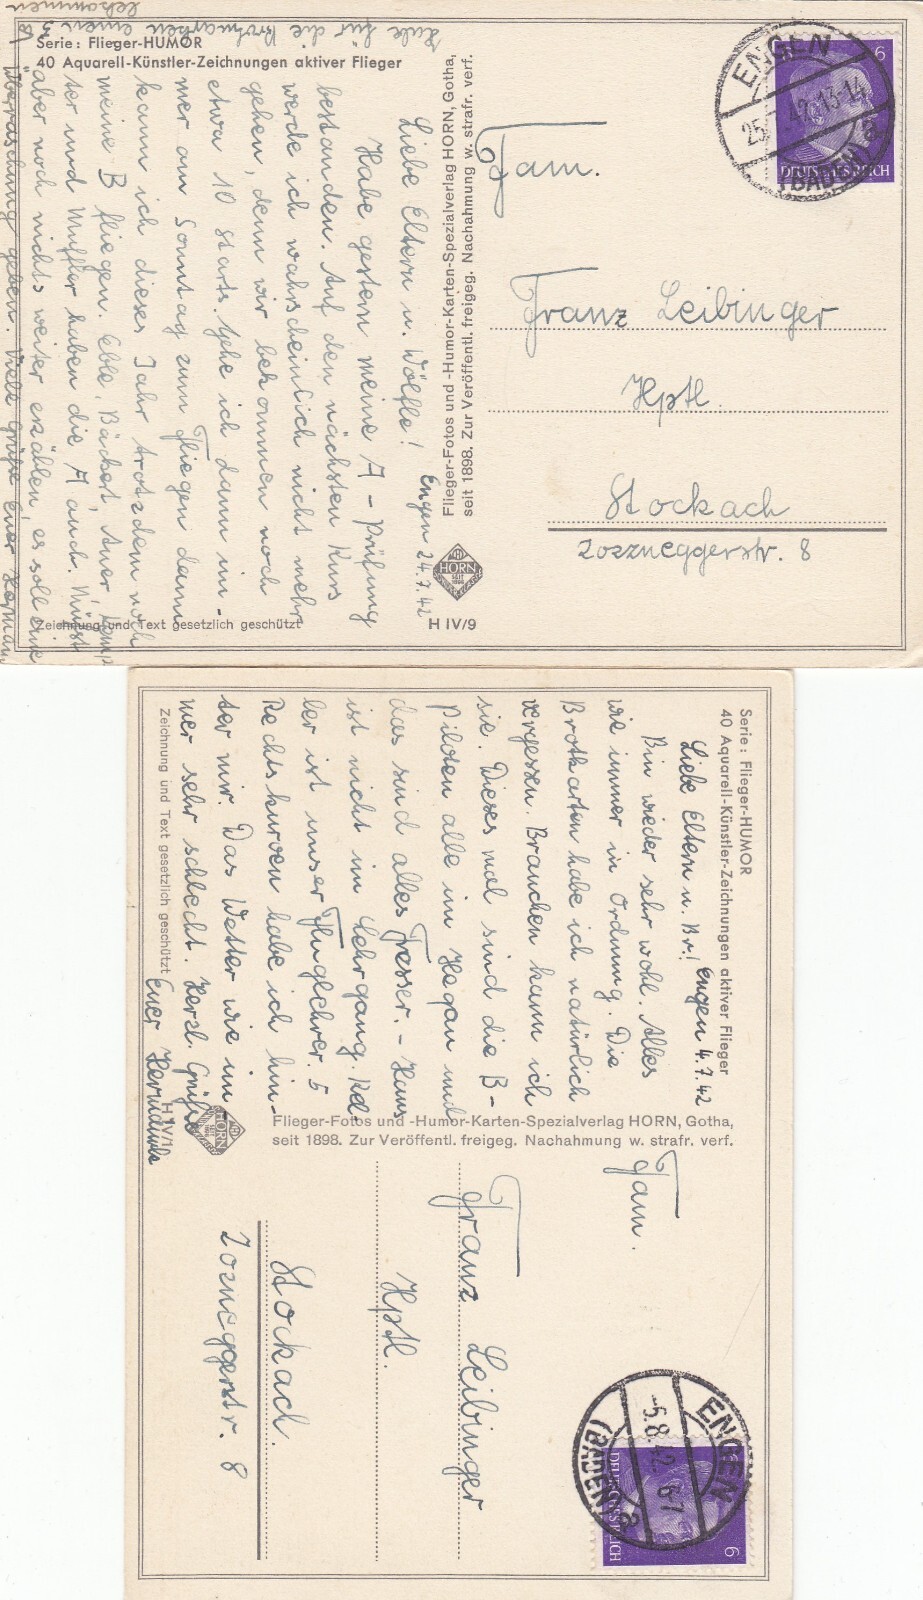 Habe für die Brotmarken einen 3 ℔
bekommen
Serie: Flieger-HUMOR
40 Aquarell-Künstler-Zeichnungen aktiver Flieger
Engen 24.7.42
Liebe Eltern u. Wölfle!
Habe gestern meine A-Prüfung
bestanden. Auf den nächsten Kurs
werde ich wahrscheinlich nicht mehr
gehen, denn wir bekommen noch
etwa 10 Starts. Gehe ich dann im-
mer am Sonntag zum Fliegen dann
kann ich dieses Jahr trotzdem noch
meine B fliegen. Eble, Bächert, Auer, Kemp
ter und Muffler haben die A auch. Müsst
aber noch nichts weiter erzählen, es soll eine
Überraschung geben. Viele Grüße Euer Hermann
Zeichnung und Text gesetzlich geschützt
Flieger-Fotos und -Humor-Karten-Spezialverlag HORN, Gotha,
seit 1898. Zur Veröffentl. freigeg. Nachahmung w. strafr. verf.
HORN
SEIT
1898
H IV/9
Fam.
Franz Leibinger
Hptl.
Stockach
Zoszneggerstr. 8
6
DEUTSCHES REICH
ENGEN
25. 42.13-14
(BADEN) a
Serie: Flieger-HUMOR
40 Aquarell-Künstler-Zeichnungen aktiver Flieger
Engen 4.7.42
Liebe Eltern u. Br.!
Bin wieder sehr wohl. Alles
wie immer in Ordnung. Die
Brotkarten habe ich natürlich
vergessen. Brauchen kann ich
sie. Dieses mal sind die B-
Piloten alle im Hegau und
das sind alles Fresser. - Hans
ist nicht im Lehrgang. Kel-
ler ist unser Fluglehrer. 5
Rechtskurven habe ich hin-
ter mir. Das Wetter wie im-
mer sehr schlecht. Herzl. Grüße
Euer Hermännle
Zeichnung und Text gesetzlich geschützt
H IV/1
HORN
Flieger-Fotos und -Humor-Karten-Spezialverlag HORN, Gotha,
seit 1898. Zur Veröffentl. freigeg. Nachahmung w. strafr. verf.
Fam.
Franz Leibinger
Hptl.
Stockach
Zoszneggerstr. 8
6
DEUTSCHES REICH
ENGEN
-5.8.42.6-7
(BADEN) a